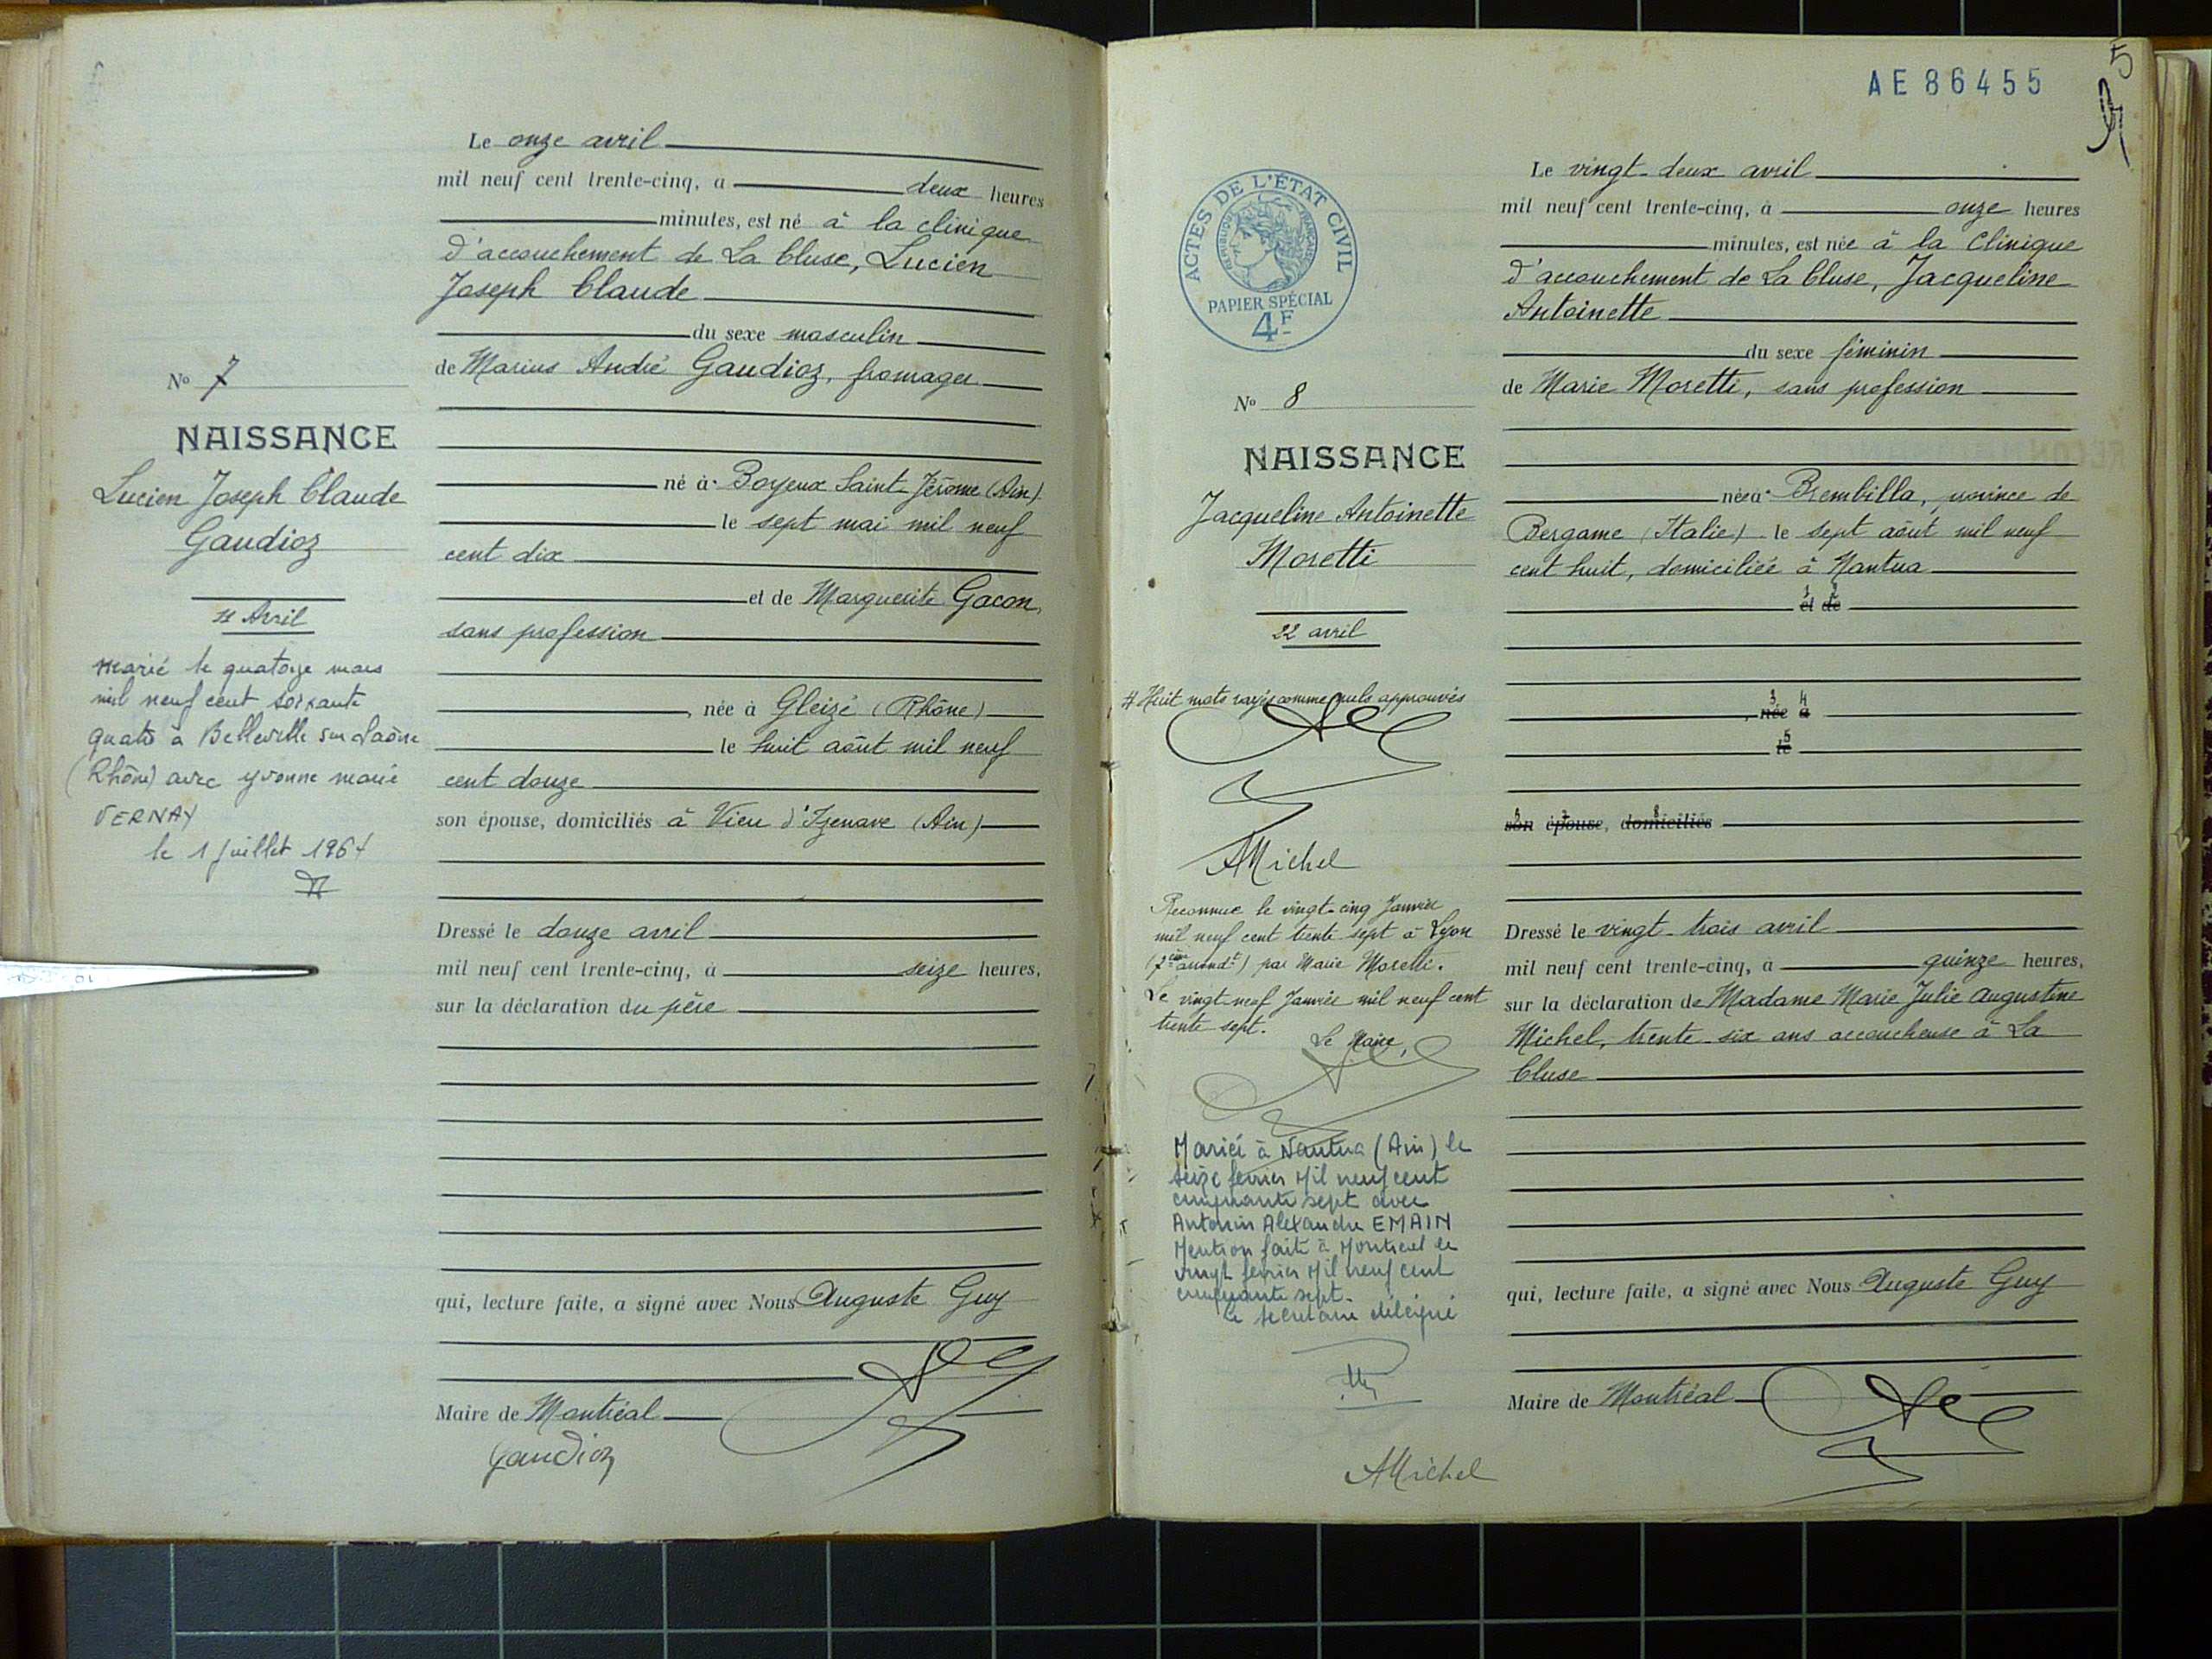 Le onze avril
mil neuf cent trente-cinq, à deux heures
minutes, est né à la clinique
d'accouchement de La Cluse, Lucien
Joseph Claude
du sexe masculin
de Marius André Gaudioz, fromager
né à Boyeux Saint-Jérôme (Ain)
le sept mai mil neuf
cent dix
et de Marguerite Gacon,
sans profession
, née à Gleizé (Rhône)
le huit août mil neuf
cent douze
son épouse, domiciliés à Vieu d'Izenave (Ain)
Dressé le douze avril
mil neuf cent trente-cinq, à seize heures,
sur la déclaration du père
qui, lecture faite, a signé avec Nous Auguste Guy
Maire de Montréal
Gaudioz
No 7
NAISSANCE
Lucien Joseph Claude
Gaudioz
11 Avril
marié le quatorze mars
mil neuf cent soixante
quatre à Belleville sur Saône
(Rhône) avec Yvonne Marie
VERNAY
le 1 juillet 1964
AE86455
5
ACTES DE L'ÉTAT CIVIL
RÉPUBLIQUE FRANÇAISE
PAPIER SPÉCIAL
4F
No 8
NAISSANCE
Jacqueline Antoinette
Moretti
22 avril
# Huit mots rayés comme nuls approuvés
AMichel
Reconnue le vingt-cinq Janvier
mil neuf cent trente sept à Lyon
(7ème arrondt) par Marie Moretti.
Le vingt-neuf Janvier mil neuf cent
trente sept.
Le Maire,
Mariée à Nantua (Ain) le
seize février Mil neuf cent
cinquante sept avec
Antonin Alexandre EMAIN
Mention faite à Montréal le
vingt février Mil neuf cent
cinquante sept.
Le secrétaire délégué
AMichel
Le vingt-deux avril
mil neuf cent trente-cinq, à onze heures
minutes, est née à la Clinique
d'accouchement de La Cluse, Jacqueline
Antoinette
du sexe féminin
de Marie Moretti, sans profession
née à Brembilla, province de
Bergame (Italie) le sept août mil neuf
cent huit, domiciliée à Nantua
1 2
et de
3 4
, née à
5
le
6 7 8
son épouse, domiciliés
Dressé le vingt-trois avril
mil neuf cent trente-cinq, à quinze heures,
sur la déclaration de Madame Marie Julie Augustine
Michel, trente-six ans accoucheuse à La
Cluse
qui, lecture faite, a signé avec Nous Auguste Guy
Maire de Montréal